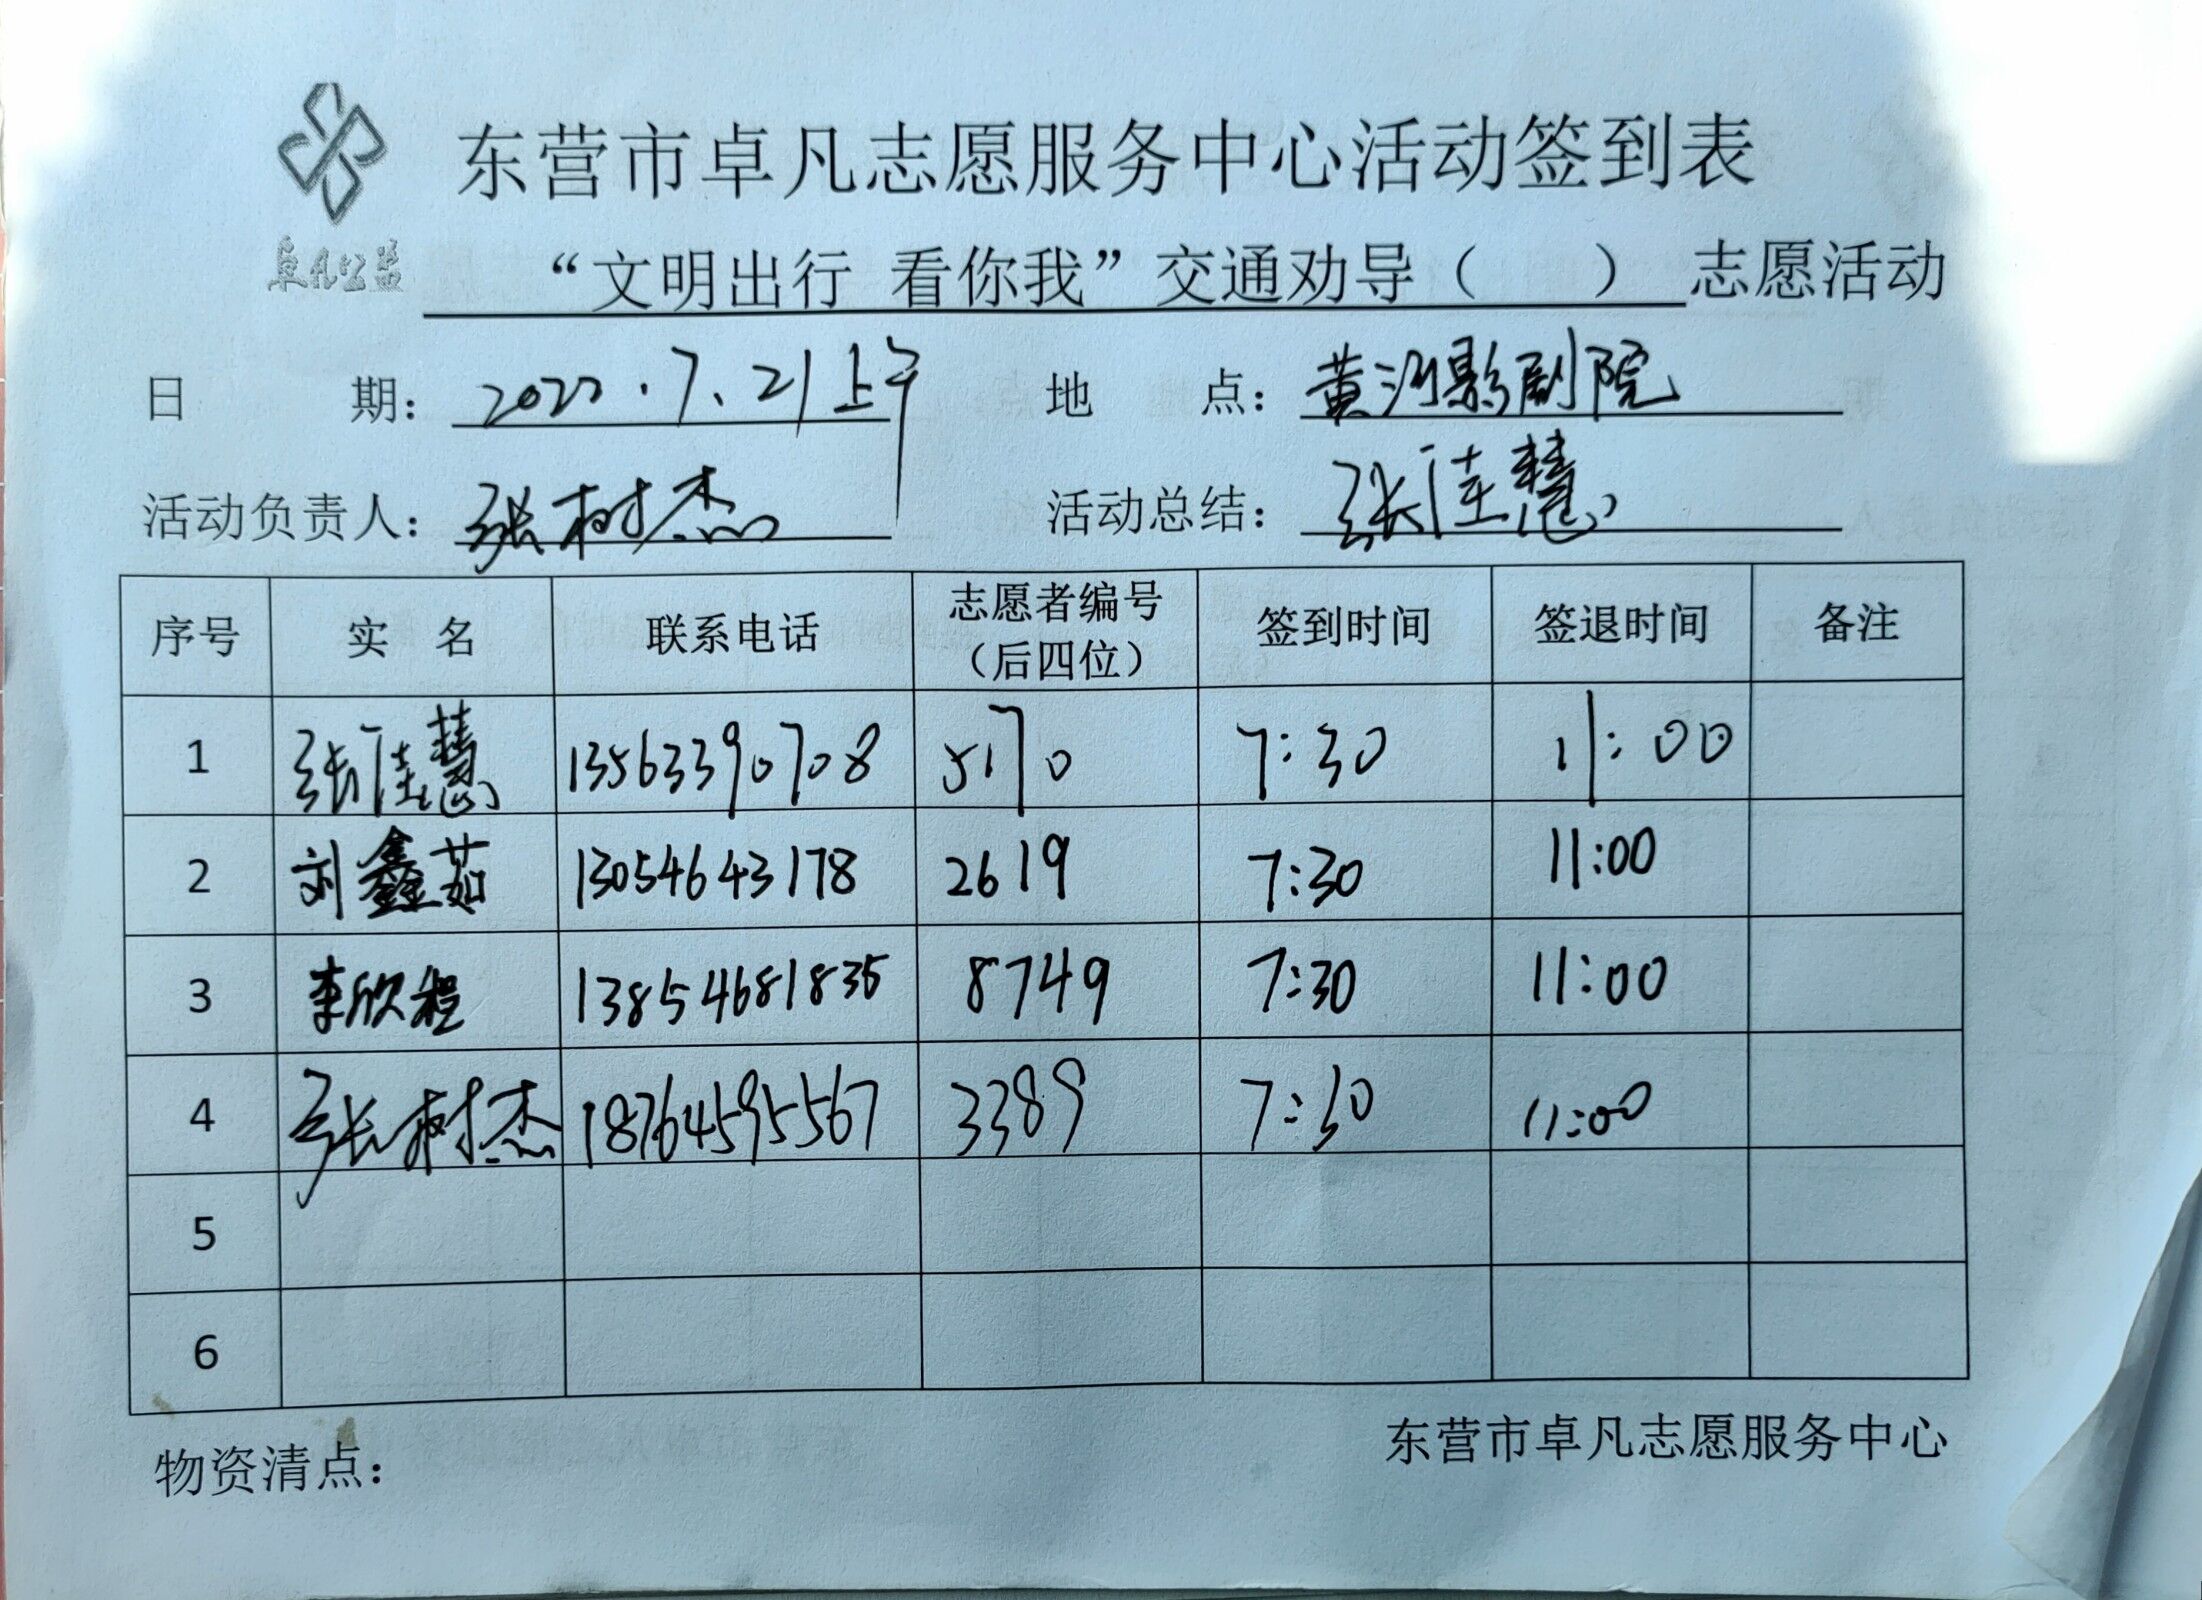 东营市卓凡志愿服务中心活动签到表
卓凡公益
“文明出行 看你我”交通劝导（ ）志愿活动
日 期：2022.7.21上午 地 点：黄河影剧院
活动负责人：张树杰 活动总结：张佳慧
序号 实 名 联系电话 志愿者编号（后四位） 签到时间 签退时间 备注
1 张佳慧 13563390708 5170 7:30 11:00
2 刘鑫茹 13054643178 2619 7:30 11:00
3 李欣程 13854681835 8749 7:30 11:00
4 张树杰 18764595567 3389 7:30 11:00
5
6
东营市卓凡志愿服务中心
物资清点：